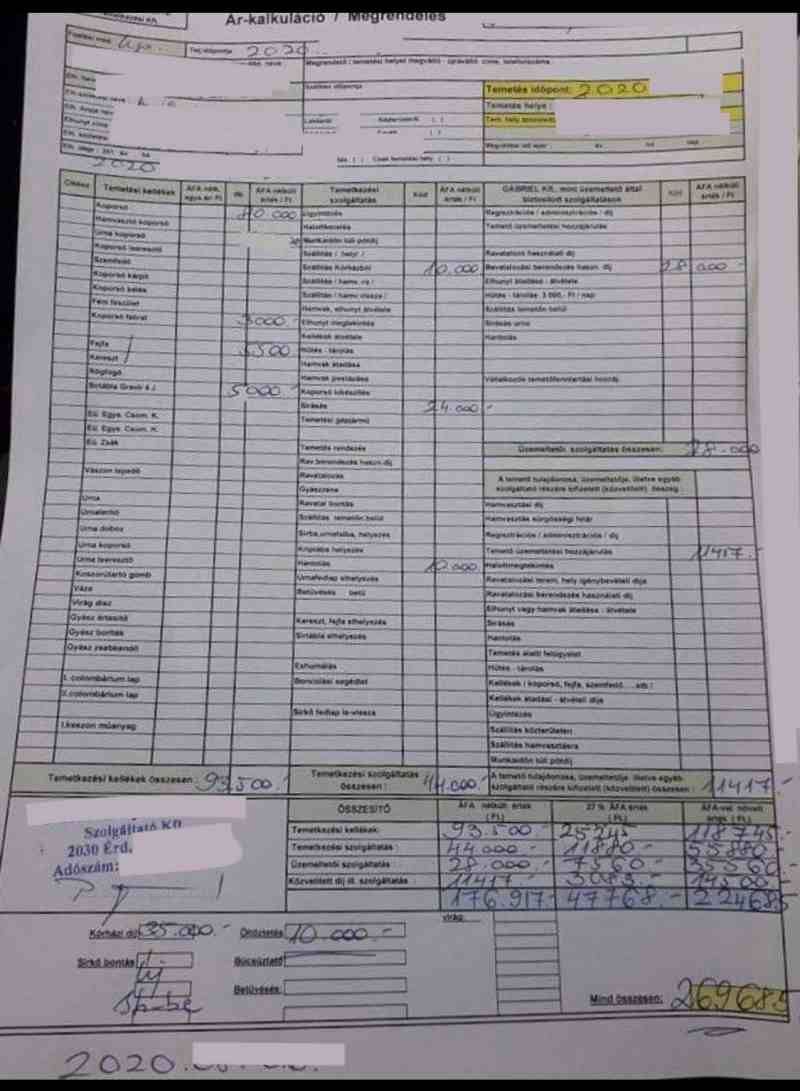 Ár-kalkuláció / Megrendelés
2020
Temetés időpont: 2020
Temetés helye:
2020
Cikksz. Temetési kellékek ÁFA nélk. egys. ár/ Ft db ÁFA nélküli érték / Ft Temetkezési szolgáltatás Kód ÁFA nélküli érték / Ft GABRIEL Kft. mint üzemeltető által biztosított szolgáltatások Kód ÁFA nélküli érték / Ft
Koporsó 80 000 Ügyintézés Regisztrációs / adminisztrációs / díj
Hamvasztó koporsó Halottkezelés Temető üzemeltetési hozzájárulás
Urna koporsó Munkaidőn túli pótdíj
Koporsó leeresztő Szállítás / helyi / Ravatalozó használati díj
Szemfedő Szállítás Kórházból 10.000 Ravatalozási berendezés haszn. díj 28 000.-
Koporsó kárpit Szállítás / hamv. ra / Elhunyt átadása - átvétele
Koporsó bélés Szállítás / hamv. vissza / Hűtés - tárolás 3 000,- Ft / nap
Fém feszület Hamvak, elhunyt átvétele Szállítás temetőn belül
Koporsó felirat 3000.- Elhunyt megtekintés Sírásás urna
Kellékek átvétele Hantolás
Fejfa 5500 Hűtés - tárolás
Kereszt Hamvak átadása
Rögfogó Hamvak postázása Vállalkozók temetőfenntartási hozzáj.
Sírtábla 5000.- Koporsó lukészítés
Sírásás 24.000.-
Eü. Egys. Csom. K. Temetési gépjármű
Eü. Egys. Csom. K.
Eü. Zsák Temetés rendezés Üzemeltetői. szolgáltatás összesen: 28.000
Rav.berendezés haszn.díj
Vászon lepedő Ravatalozás A temető tulajdonosa, üzemeltetője, illetve egyéb szolgáltató részére kifizetett (közvetített) összeg :
Gyászzene
Urna Ravatal bontás Hamvasztási díj
Urnatartó Szállítás temetőn belül Hamvasztás sürgősségi felár
Urna doboz Sírba,urnafalba, helyezés Regisztrációs / adminisztrációs / díj
Urna koporsó Kriptába helyezés Temető üzemeltetési hozzájárulás 11417.-
Urna leeresztő Hantolás 10.000 Halottmegtekintés
Koszorútartó gomb Urnafedlap elhelyezés Ravatalozó terem, hely igénybevételi díja
Váza Betűvésés betű Ravatalozási berendezés használati díj
Virág dísz Elhunyt vagy hamvak átadása - átvétele
Gyász értesítő Kereszt, fejfa elhelyezés Sírásás
Gyász boríték Sírtábla elhelyezés Hantolás
Gyász zsebkendő Temetés alatti felügyelet
Exhumálás Hűtés - tárolás
I. colombárium lap Boncolási segédlet Kellékek / koporsó, fejfa, szemfedő....stb /
II.colombárium lap Kellékek átadási - átvételi díja
Sírkő fedlap le-vissza Ügyintézés
I.kasszon műanyag Szállítás közterületen
Szállítás hamvasztásra
Munkaidőn túli pótdíj
Temetkezési kellékek összesen : 93.500.- Temetkezési szolgáltatás összesen : 44.000.- A temető tulajdonosa, üzemeltetője, illetve egyéb szolgáltató részére kifizetett (közvetített) összesen : 11417.-
ÖSSZESÍTŐ ÁFA nélküli érték (Ft.) 27 % ÁFA érték (Ft.) ÁFA-val növelt érték (Ft.)
Temetkezési kellékek: 93.500.- 25245 118745.-
Szolgáltató Kft
Temetkezési szolgáltatás : 44000.- 11880.- 55880.-
2030 Érd,
Üzemeltetői szolgáltatás 28.000.- 7560.- 35560.-
Adószám:
Közvetített díj ill. szolgáltatás : 11417.- 3083.- 14500.-
176.917.- 47768.- 224685
Kórházi díj 35.000.- Öltöztetés 10.000.- virág:
Sírkő bontás Búcsúztató
Betűvésés: Mind összesen: 269685
2020.